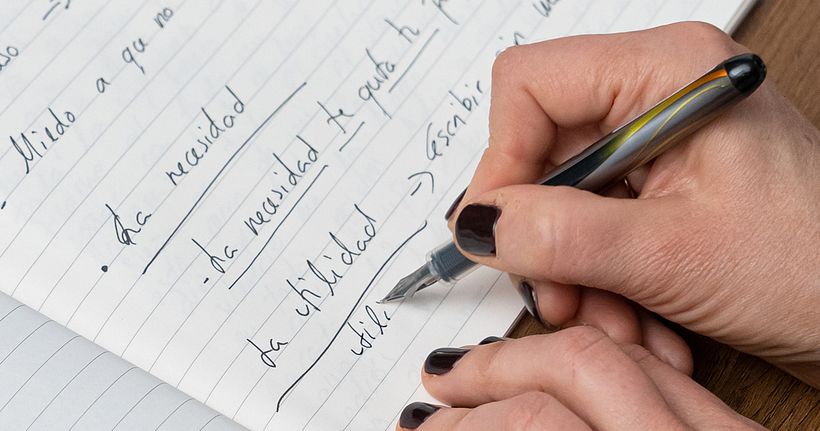 - Miedo a que no
• La necesidad
- La necesidad te quita ti
La utilidad → escribir
utili